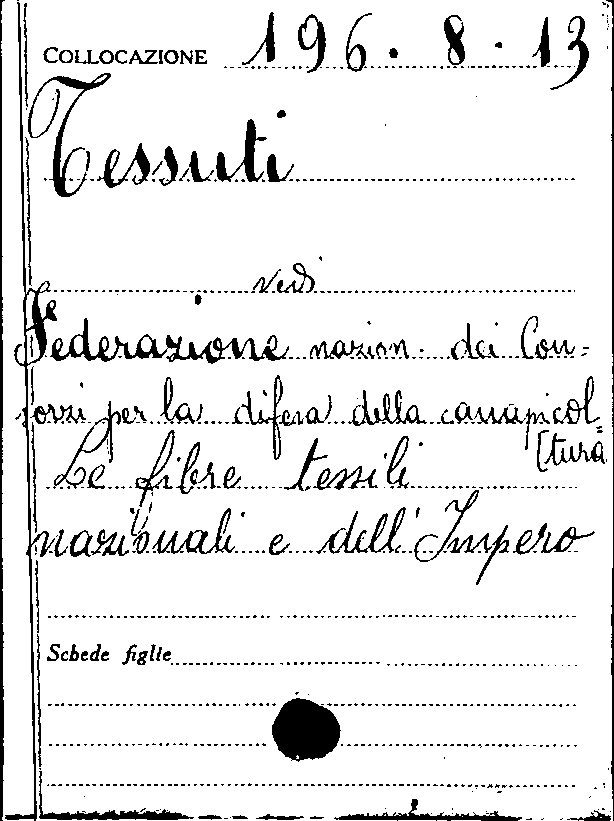 COLLOCAZIONE 196. 8. 13
Tessuti
vedi
Federazione nazion. dei Con-
sorzi per la difesa della canapicol=
[tura
Le fibre tessili
nazionali e dell'Impero
Schede figlie